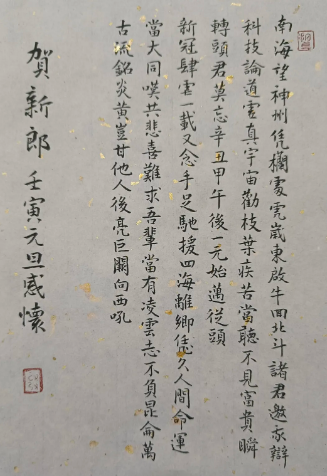 南海望神州凭欄處虎嵗東啟牛回北斗諸君邀我辯
科技論道害真宇宙勸枝葉疾苦當聽不見富貴瞬
轉頭君莫忘辛丑甲午後一元始邁從頭
新冠肆害一載又念手足馳援四海離鄉恁久人間命運
當大同嘆共悲喜難求吾輩當有凌雲志不負昆侖萬
古流銘炎黃豈甘他人後亮巨闕向西吼
賀新郎壬寅元旦感懷